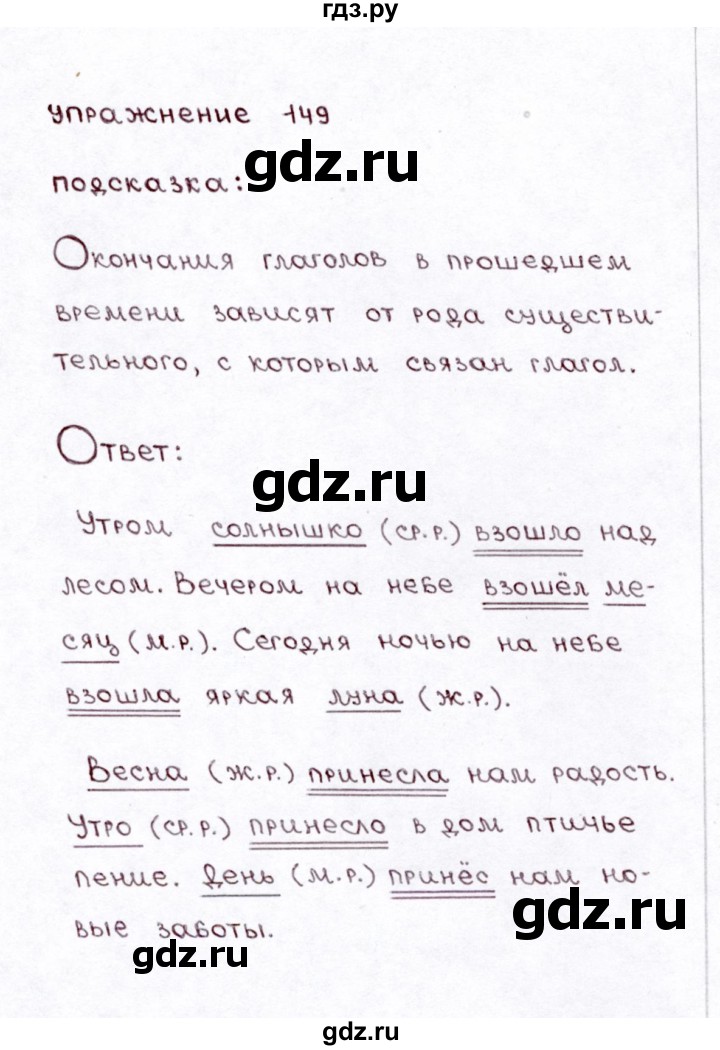 гдз.ру
упражнение 149
gdz.ru
подсказка:
Окончания глаголов в прошедшем
времени зависят от рода существи-
тельного, с которым связан глагол.
Ответ:
gdz.ru
Утром солнышко (ср.р.) взошло над
лесом. Вечером на небе взошёл ме-
сяц (м.р.). Сегодня ночью на небе
взошла яркая луна (ж.р.).
Весна (ж.р.) принесла нам радость.
Утро (ср.р.) принесло в дом птичье
пение. День (м.р.) принёс нам но-
gdz.ru
вые заботы.
gdz.ru
gdz.ru